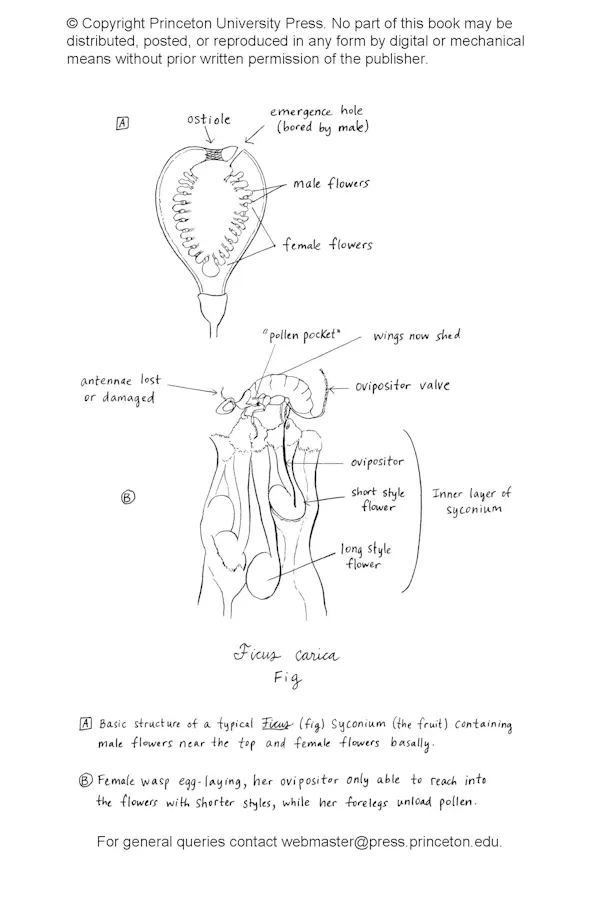 © Copyright Princeton University Press. No part of this book may be
distributed, posted, or reproduced in any form by digital or mechanical
means without prior written permission of the publisher.
A
ostiole
emergence hole
(bored by male)
male flowers
female flowers
"pollen pocket"
wings now shed
antennae lost
or damaged
ovipositor valve
B
ovipositor
short style
flower
long style
flower
Inner layer of
syconium
Ficus carica
Fig
A Basic structure of a typical Ficus (fig) Syconium (the fruit) containing
male flowers near the top and female flowers basally.
B Female wasp egg-laying, her ovipositor only able to reach into
the flowers with shorter styles, while her forelegs unload pollen.
For general queries contact webmaster@press.princeton.edu.